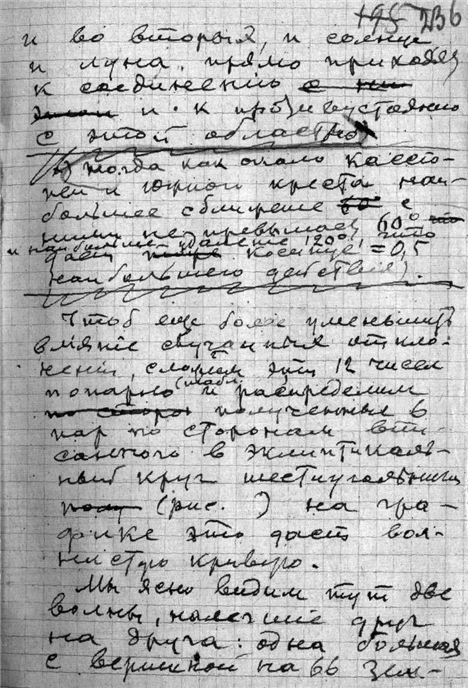 195 236
и во вторых, и солнце
и луна прямо приходят
к соединению с ни
и к противустоянию
с этой областью
тогда как около Кассио-
пеи и Южного креста наи-
большее сближение с
ними не превышает 60° что
и наибольшее удаление 120°,
дает косинус = 0,5
наибольшего действия).
Чтоб еще более уменьшить
влияние случайных откло-
нений, сложим эти 12 чисел
попарно (табл. и распределим
по сторон полученные 6
пар по сторонам впи-
санного в эклиптикаль-
ный круг шестиугольника
(рис. ) на гра-
фике это даст вол-
нистую кривую.
Мы ясно видим тут две
волны, налегшие друг
на друга: одна большая
с вершиной на 66 зем-